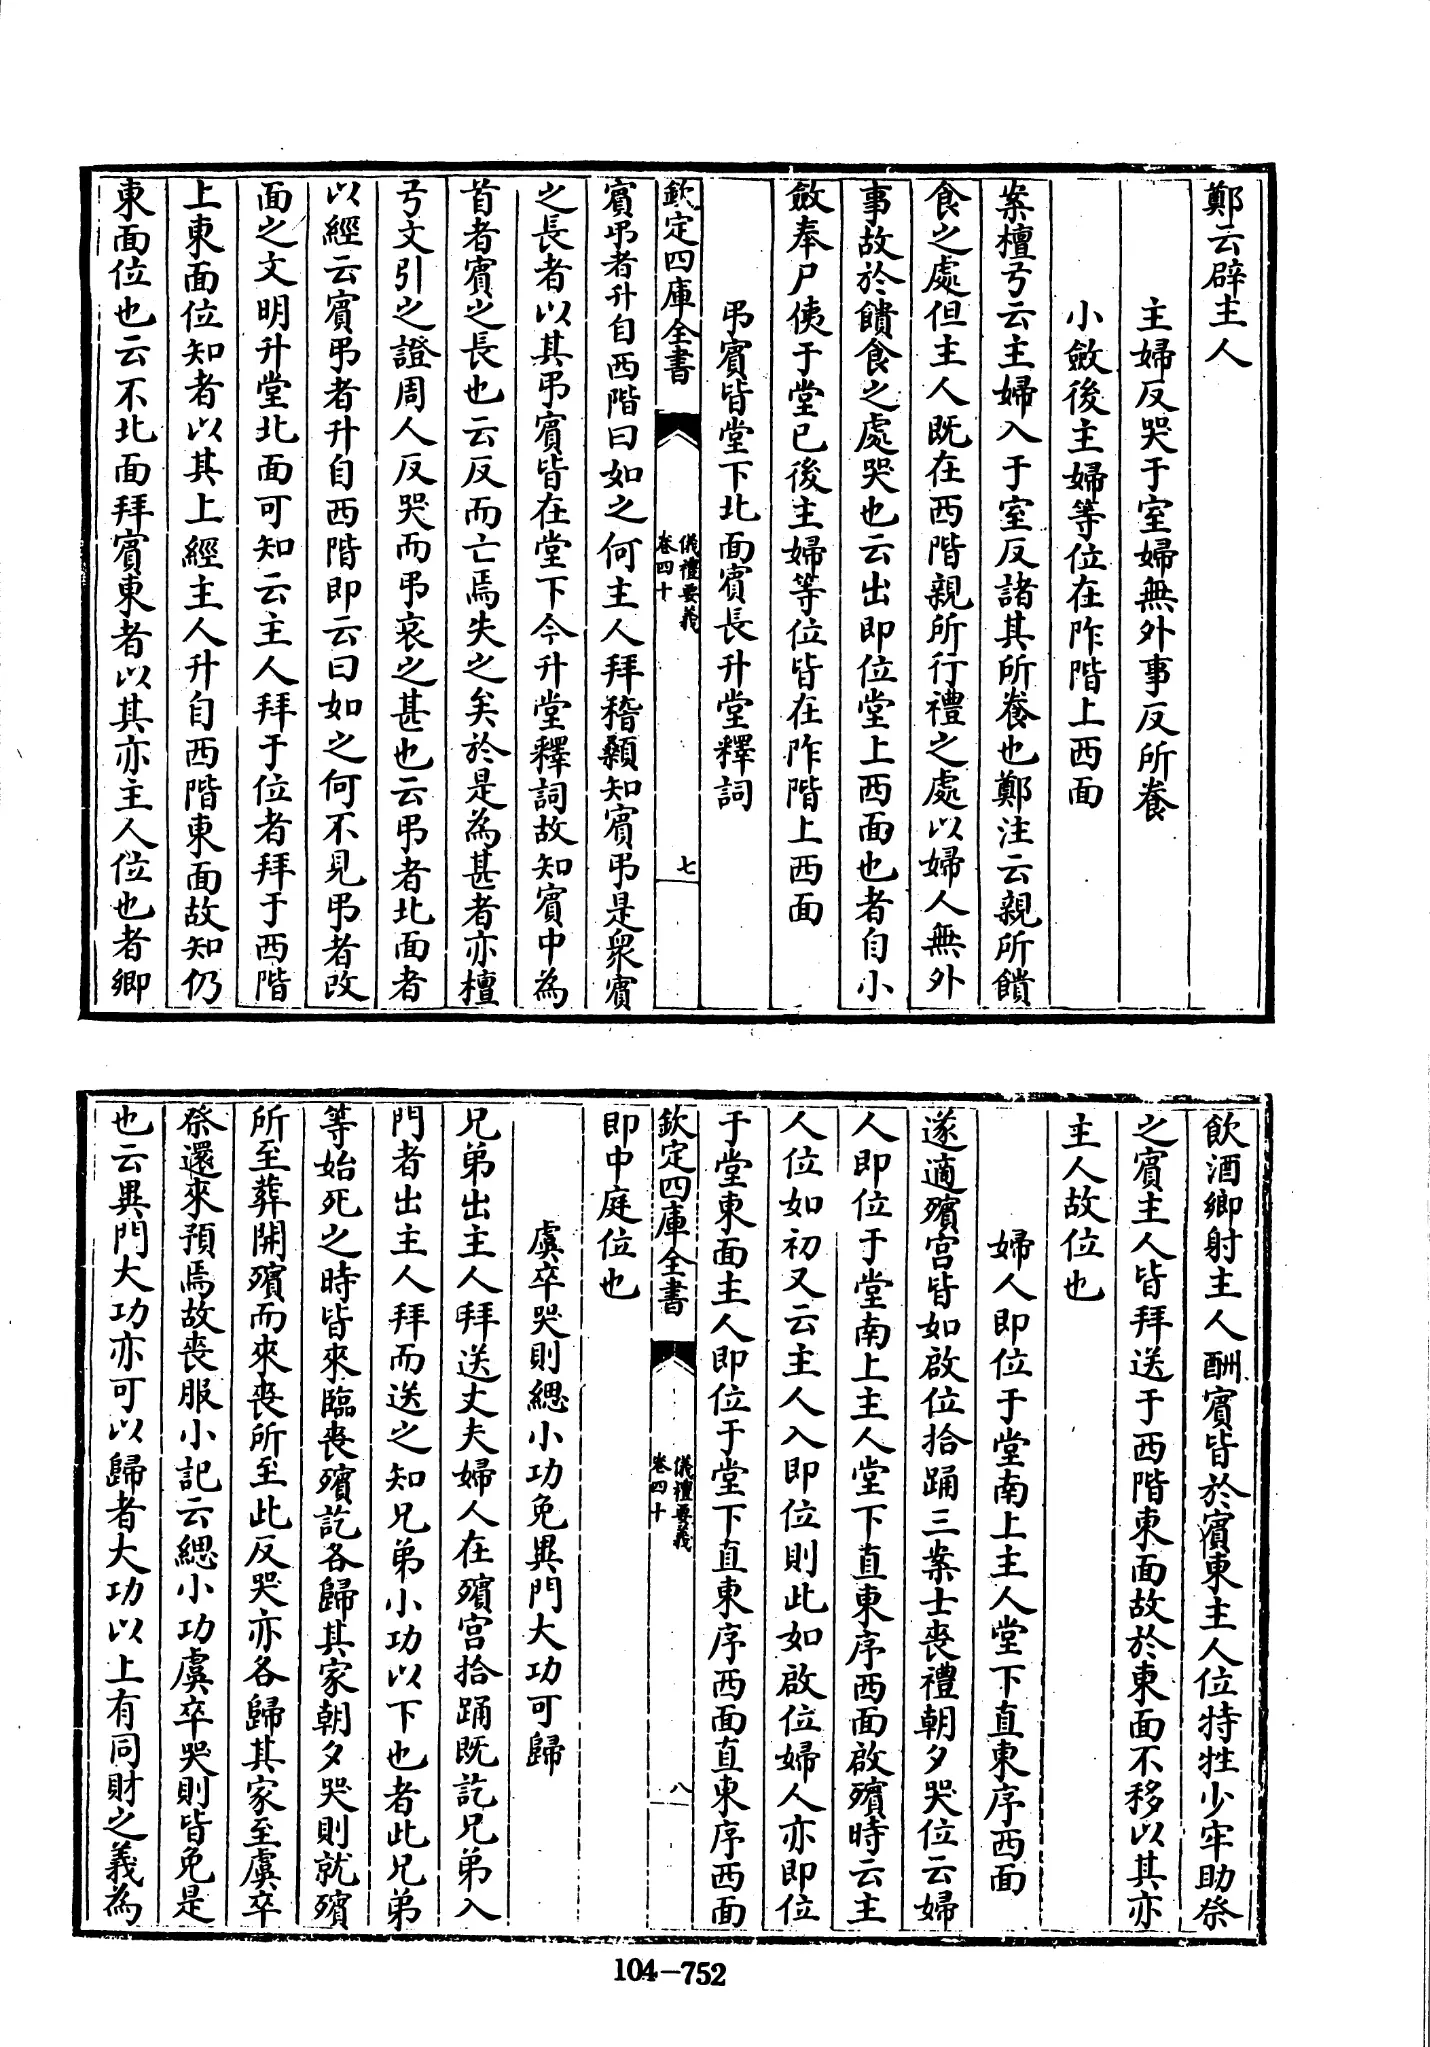 鄭云辟主人
主婦反哭于室婦無外事反所養
小斂後主婦等位在阼階上西面
案檀弓云主婦入于室反諸其所養也鄭注云親所饋
食之處但主人既在西階親所行禮之處以婦人無外
事故於饋食之處哭也云出即位堂上西面也者自小
斂奉尸侇于堂已後主婦等位皆在阼階上西面
弔賓皆堂下北面賓長升堂釋詞
欽定四庫全書
儀禮要義
卷四十
七
賓弔者升自西階曰如之何主人拜稽顙知賓弔是衆賓
之長者以其弔賓皆在堂下今升堂釋詞故知賓中為
首者賓之長也云反而亡焉失之矣於是為甚者亦檀
弓文引之證周人反哭而弔哀之甚也云弔者北面者
以經云賓弔者升自西階即云曰如之何不見弔者改
面之文明升堂北面可知云主人拜于位者拜于西階
上東面位知者以其上經主人升自西階東面故知仍
東面位也云不北面拜賓東者以其亦主人位也者鄉
飲酒鄉射主人酬賓皆於賓東主人位特牲少牢助祭
之賓主人皆拜送于西階東面故於東面不移以其亦
主人故位也
婦人即位于堂南上主人堂下直東序西面
遂適殯宮皆如啟位拾踊三案士喪禮朝夕哭位云婦
人即位于堂南上主人堂下直東序西面啟殯時云主
人位如初又云主人入即位則此如啟位婦人亦即位
于堂東面主人即位于堂下直東序西面直東序西面
欽定四庫全書
儀禮要義
卷四十
八
即中庭位也
虞卒哭則緦小功免異門大功可歸
兄弟出主人拜送丈夫婦人在殯宮拾踊既訖兄弟入
門者出主人拜而送之知兄弟小功以下也者此兄弟
等始死之時皆來臨喪殯訖各歸其家朝夕哭則就殯
所至葬開殯而來喪所至此反哭亦各歸其家至虞卒
祭還來預焉故喪服小記云緦小功虞卒哭則皆免是
也云異門大功亦可以歸者大功以上有同財之義為
104-752